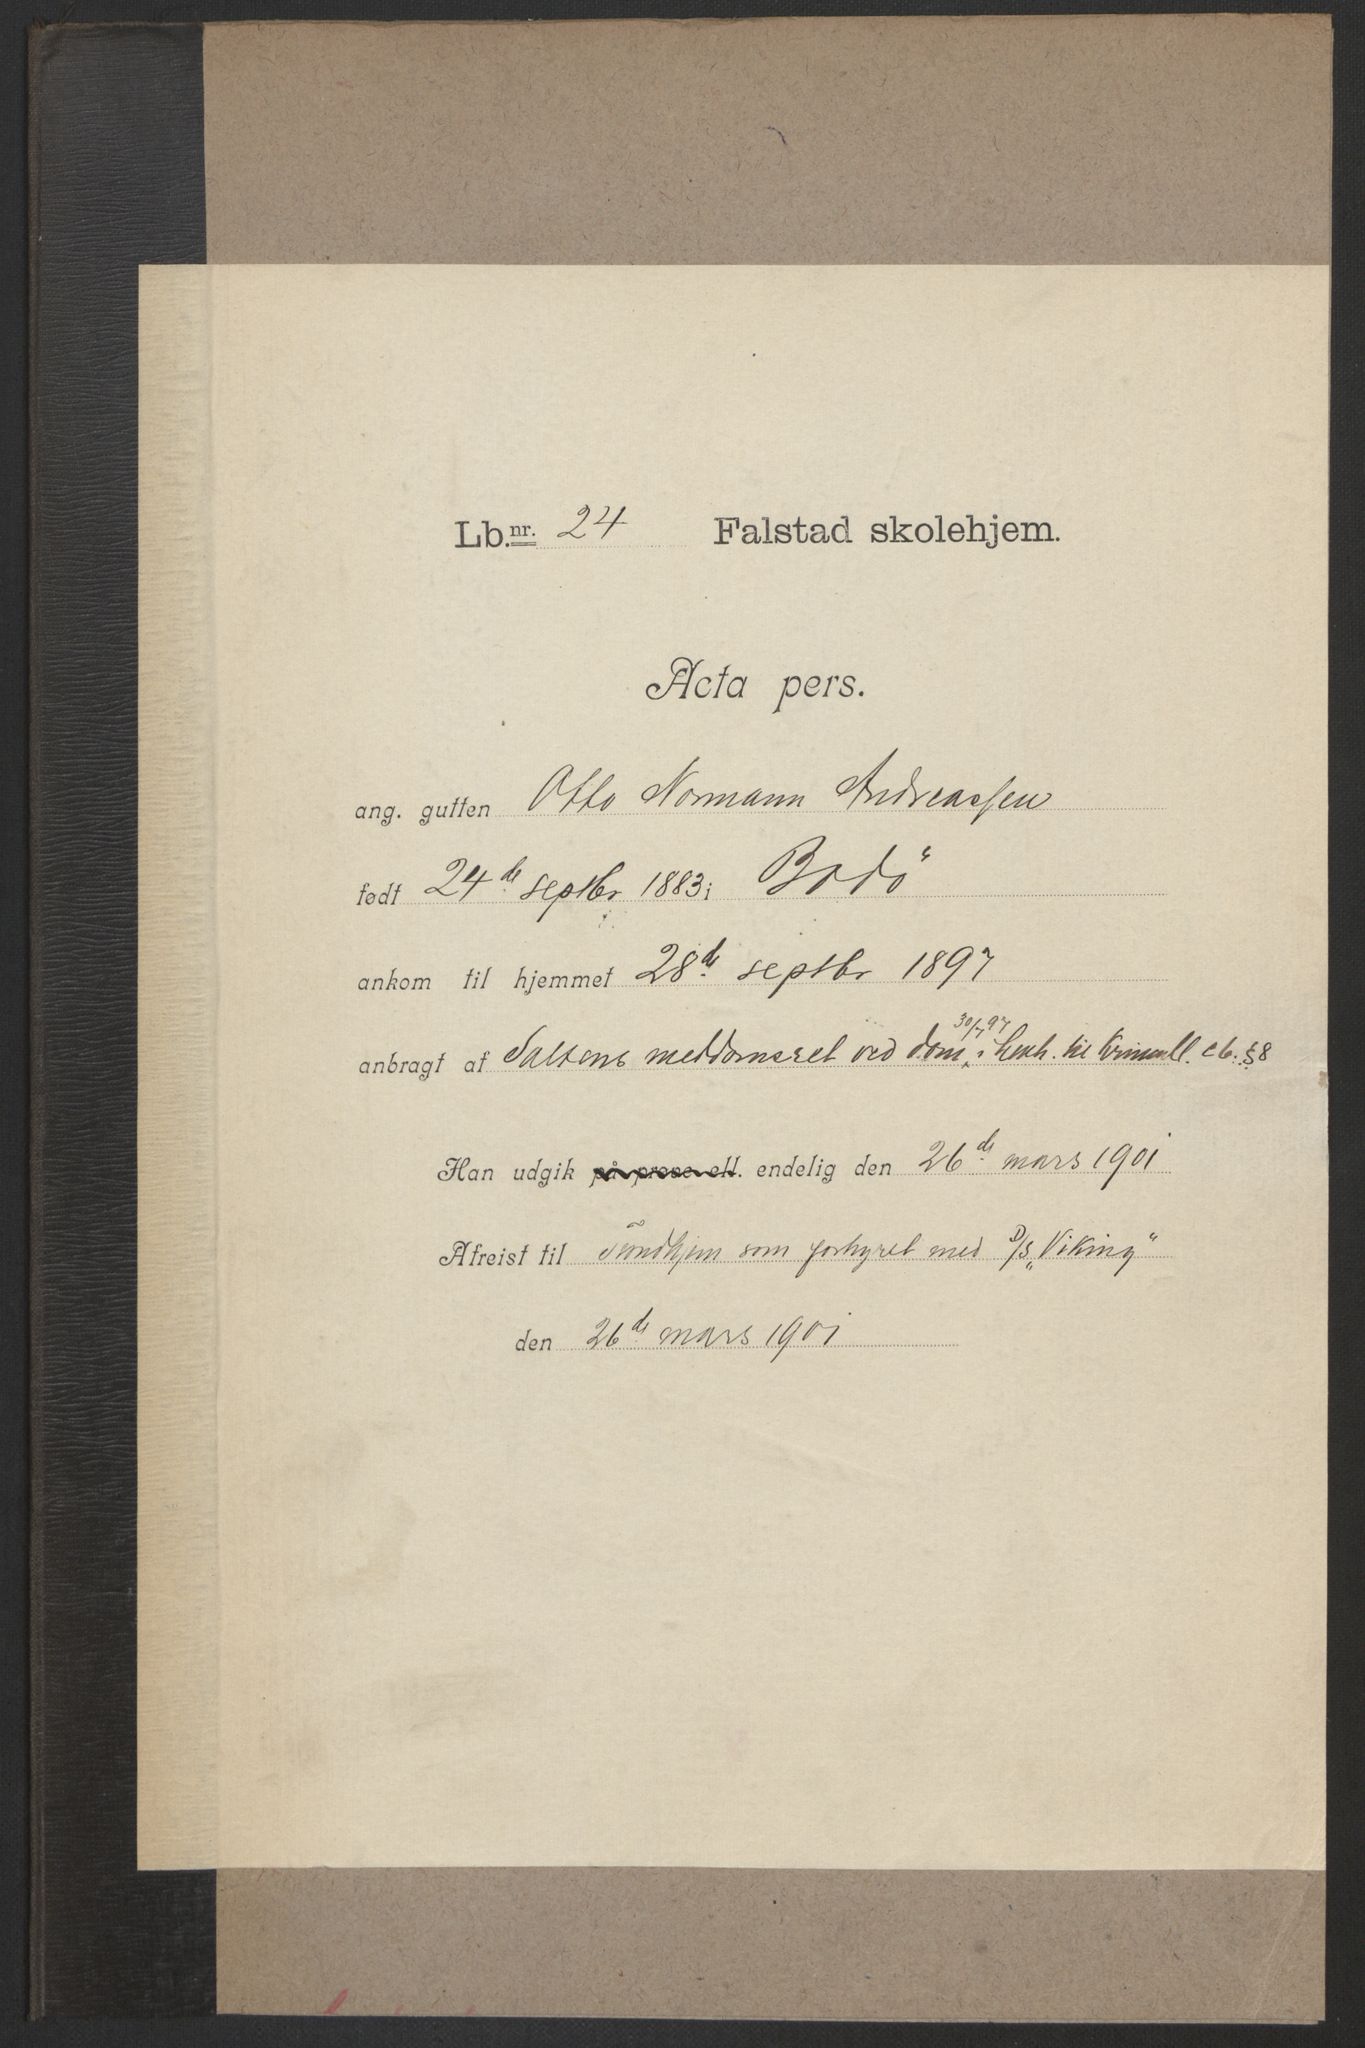 Lb.nr. 24 Falstad skolehjem.
Acta pers.
ang. gutten Otto Normann Andreassen
født 24de septbr 1883 i Bodö
ankom til hjemmet 28de septbr 1897
anbragt af Saltens meddomsret ved dom 30/7 97 i henh. til kriminall. c 6. § 8
Han udgik på prøve ell. endelig den 26de mars 1901
Afreist til Trondhjem som forhyret med D/S „Viking"
den 26de mars 1901